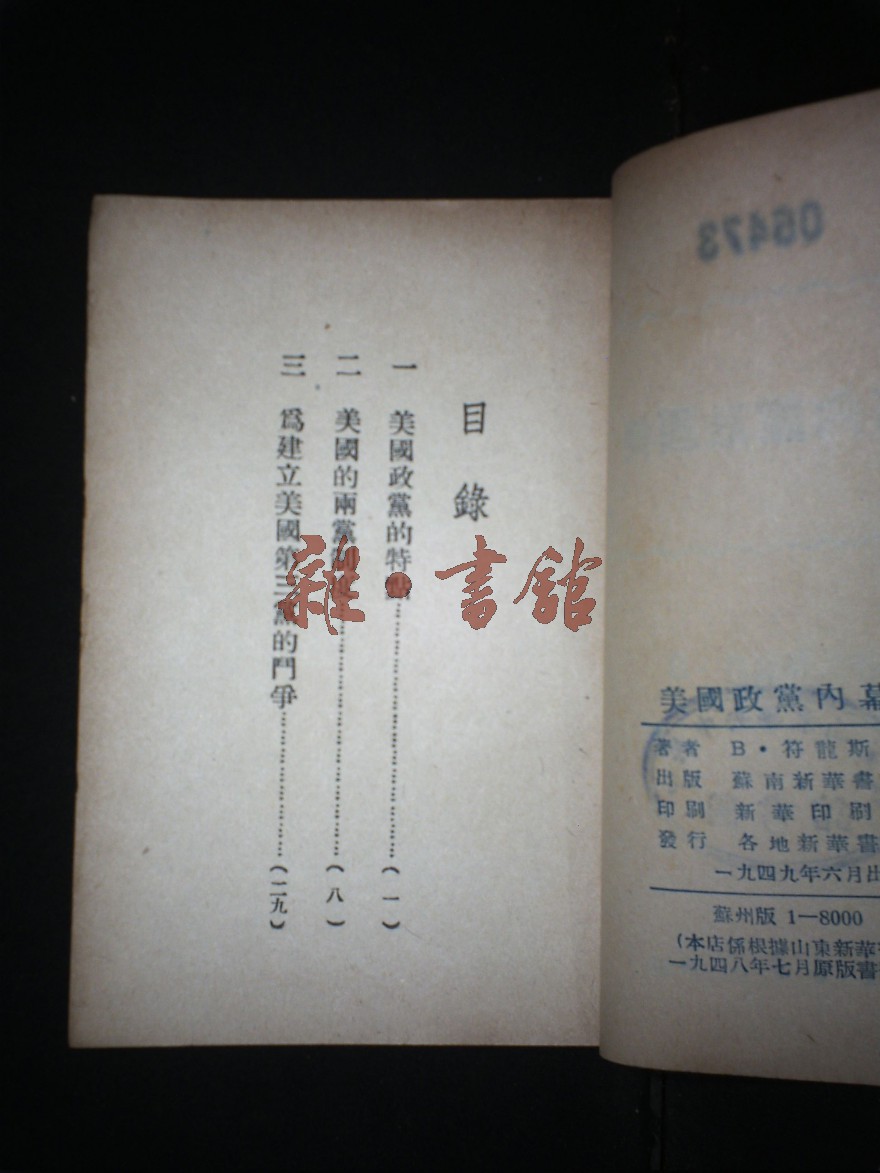 目錄
一 美國政黨的特點……………………(一)
二 美國的兩黨制度……………………(八)
三 爲建立美國第三黨的鬥爭……………(二九)
雜·書館
06473
美國政黨內幕
著者 B·符龍斯
出版 蘇南新華書
印刷 新華印刷
發行 各地新華書
一九四九年六月出
蘇州版 1—8000
(本店係根據山東新華
一九四八年七月原版書